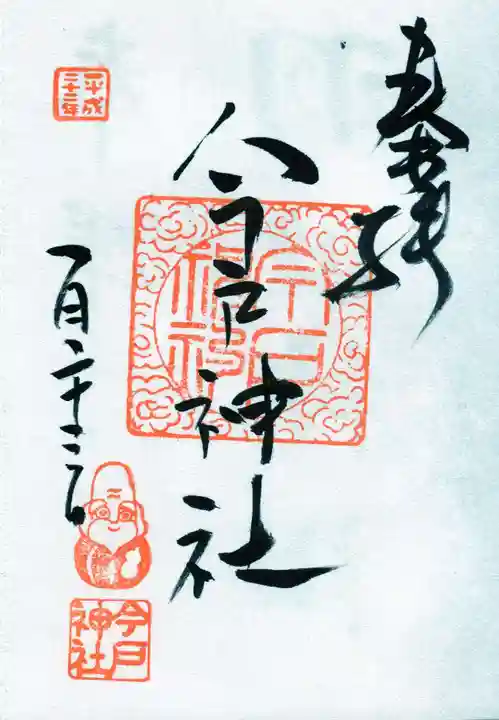 奉拝
今戸神社
今戸神社
平成
二十二年
一月二十三日
今戸
神社